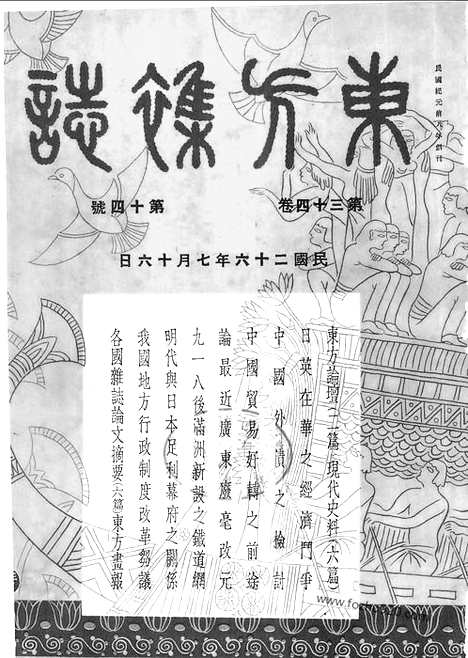 東方雜誌
民國紀元前八年創刊
第三十四卷
第十四號
民國二十六年七月十六日
東方論壇(二篇)現代史料(六篇)
日英在華之經濟鬥爭
中國外債之檢討
中國貿易好轉之前途
論最近廣東廢毫改元
九一八後滿洲新設之鐵道網
明代與日本足利幕府之關係
我國地方行政制度改革芻議
各國雜誌論文摘要(六篇)東方畫報